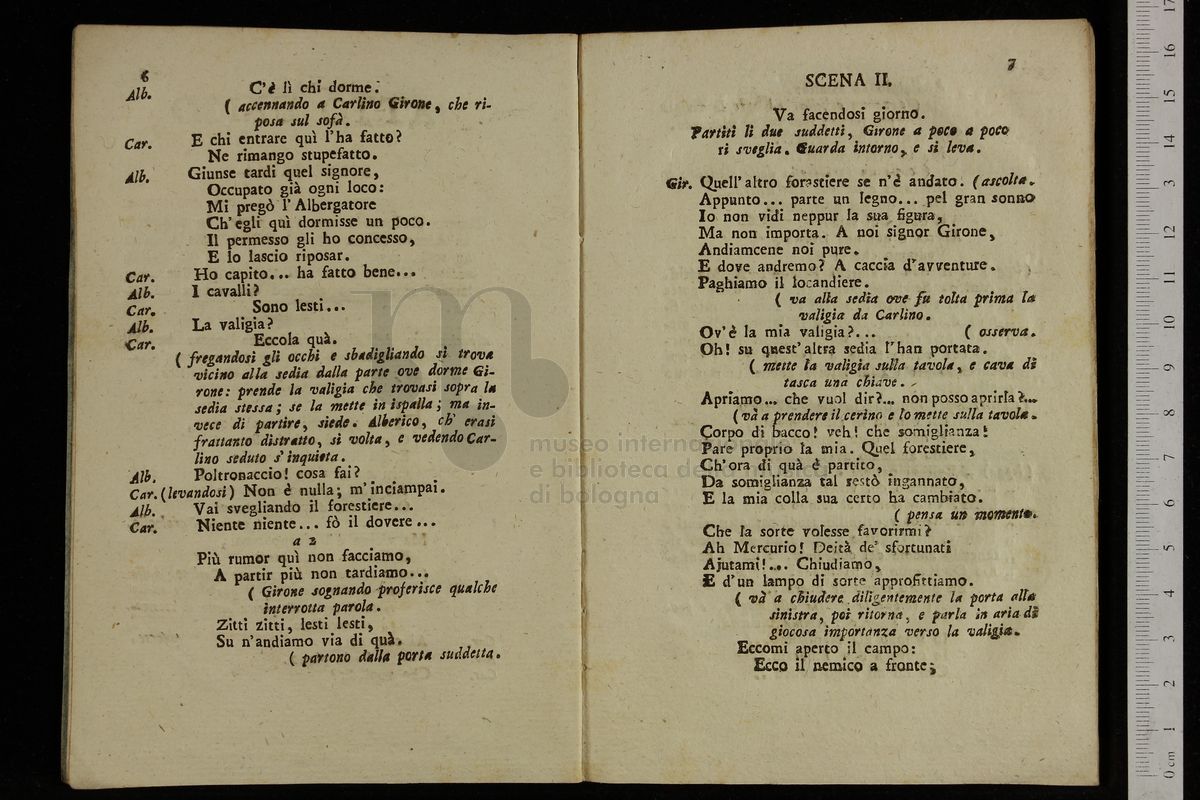 6
Alb. C'è lì chi dorme.
( accennando a Carlino Girone, che ri-
posa sul sofà.
Car. E chi entrare quì l'ha fatto?
Ne rimango stupefatto.
Alb. Giunse tardi quel signore,
Occupato già ogni loco:
Mi pregò l'Albergatore
Ch'egli quì dormisse un poco.
Il permesso gli ho concesso,
E lo lascio riposar.
Car. Ho capito... ha fatto bene...
Alb. I cavalli?
Car. Sono lesti...
Alb. La valigia?
Car. Eccola quà.
( fregandosi gli occhi e sbadigliando si trova
vicino alla sedia dalla parte ove dorme Gi-
rone: prende la valigia che trovasi sopra la
sedia stessa; se la mette in ispalla; ma in-
vece di partire, siede. Alberico, ch' erasi
frattanto distratto, si volta, e vedendo Car-
lino seduto s'inquieta.
Alb. Poltronaccio! cosa fai?
Car. (levandosi) Non è nulla; m'inciampai.
Alb. Vai svegliando il forestiere...
Car. Niente niente... fò il dovere...
a 2
Più rumor quì non facciamo,
A partir più non tardiamo...
( Girone sognando proferisce qualche
interrotta parola.
Zitti zitti, lesti lesti,
Su n'andiamo via di quà.
( partono dalla porta suddetta.
7
SCENA II.
Va facendosi giorno.
Partiti li due suddetti, Girone a poco a poco
ri sveglia. Guarda intorno, e si leva.
Gir. Quell'altro forastiere se n'è andato. (ascolta.
Appunto... parte un legno... pel gran sonno
Io non vidi neppur la sua figura,
Ma non importa. A noi signor Girone,
Andiamcene noi pure.
E dove andremo? A caccia d'avventure.
Paghiamo il locandiere.
( va alla sedia ove fu tolta prima la
valigia da Carlino.
Ov'è la mia valigia?... ( osserva.
Oh! su quest'altra sedia l'han portata.
( mette la valigia sulla tavola, e cava di
tasca una chiave.
Apriamo... che vuol dir?... non posso aprirla?...
( và a prendere il cerino e lo mette sulla tavola.
Corpo di bacco! veh! che somiglianza!
Pare proprio la mia. Quel forestiere,
Ch'ora di quà è partito,
Da somiglianza tal restò ingannato,
E la mia colla sua certo ha cambiato.
( pensa un momento.
Che la sorte volesse favorirmi?
Ah Mercurio! Deità de' sfortunati
Ajutami!... Chiudiamo,
E d'un lampo di sorte approfittiamo.
( và a chiudere diligentemente la porta alla
sinistra, poi ritorna, e parla in aria di
giocosa importanza verso la valigia.
Eccomi aperto il campo:
Ecco il nemico a fronte;
museo internazionale
e biblioteca della musica
di bologna
0 cm 1 2 3 4 5 6 7 8 9 10 11 12 13 14 15 16 17